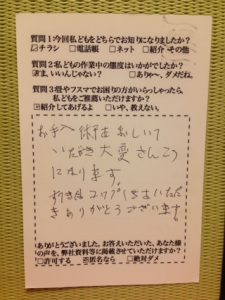 質問1今回私どもをどちらでお知りになりましたか?
☑チラシ □電話帳 □ネット □紹介 その他
質問2私どもの作業中の態度はいかがでしたか?
☑ま、いいんじゃない? □ありゃ〜、ダメだね。
質問3畳やフスマでお困りの方がいらっしゃったら、
私どもをご推薦いただけますか?
☑紹介してあげるよ □いや、教えない。
お手入 術を おしえて
いただき 大変 さんこう
になります。
いただ
き ありがとう ございます
ありがとうございました。お答えいただいた、あなた様
の声を、弊社資料等に掲載させていただけますか?
□許可する ☑匿名なら □絶対ダメ